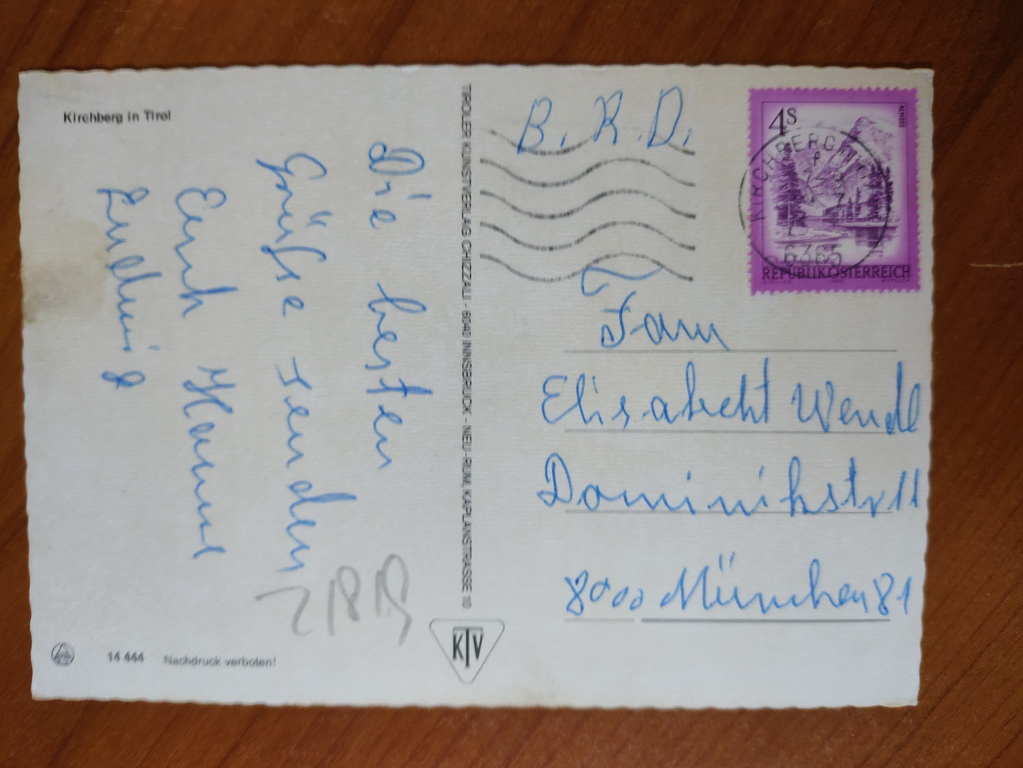 Kirchberg in Tirol
Die besten
Grüße senden
Ernst
B.R.D.
4S
ALMSEE
KIRCHBERG
6365
REPUBLIK ÖSTERREICH
Fam
Elisabeht Wendl
Dominikstr 11
8000 München 81
TIROLER KUNSTVERLAG CHIZZALI - 6040 INNSBRUCK - NEU-RUM, KAPLANSTRASSE 10
KTV
14 444 Nachdruck verboten!